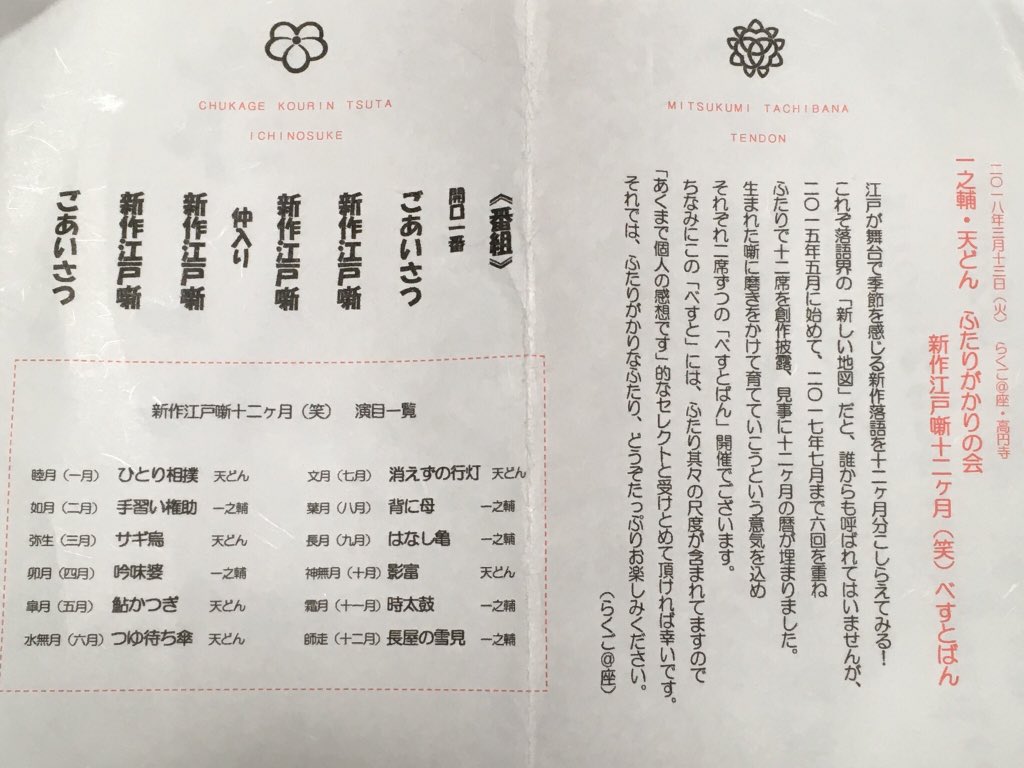 二〇一八年三月十三日（火）　らくご@座・高円寺
一之輔・天どん　ふたりがかりの会
新作江戸噺十二ヶ月（笑）べすとぱん
MITSUKUMI TACHIBANA
TENDON
江戸が舞台で季節を感じる新作落語を十二ヶ月分こしらえてみる！
これぞ落語界の「新しい地図」だと、誰からも呼ばれてはいませんが、
二〇一五年五月に始めて、二〇一七年七月まで六回を重ね
ふたりで十二席を創作披露、見事に十二ヶ月の暦が埋まりました。
生まれた噺に磨きをかけて育てていこうという意気を込め
それぞれ二席ずつの「べすとぱん」開催でございます。
ちなみにこの「べすと」には、ふたり其々の尺度が含まれてますので
「あくまで個人の感想です」的なセレクトと受けとめて頂ければ幸いです。
それでは、ふたりがかりなふたり、どうぞたっぷりお楽しみください。
（らくご@座）
CHUKAGE KOURIN TSUTA
ICHINOSUKE
《番組》
開口一番
ごあいさつ
新作江戸噺
新作江戸噺
仲入り
新作江戸噺
新作江戸噺
ごあいさつ
新作江戸噺十二ヶ月（笑）　演目一覧
睦月（一月）　ひとり相撲　天どん
如月（二月）　手習い権助　一之輔
弥生（三月）　サギ烏　天どん
卯月（四月）　吟味婆　一之輔
皐月（五月）　鮎かつぎ　天どん
水無月（六月）　つゆ待ち傘　天どん
文月（七月）　消えずの行灯　天どん
葉月（八月）　背に母　一之輔
長月（九月）　はなし亀　一之輔
神無月（十月）　影富　天どん
霜月（十一月）　時太鼓　一之輔
師走（十二月）　長屋の雪見　一之輔